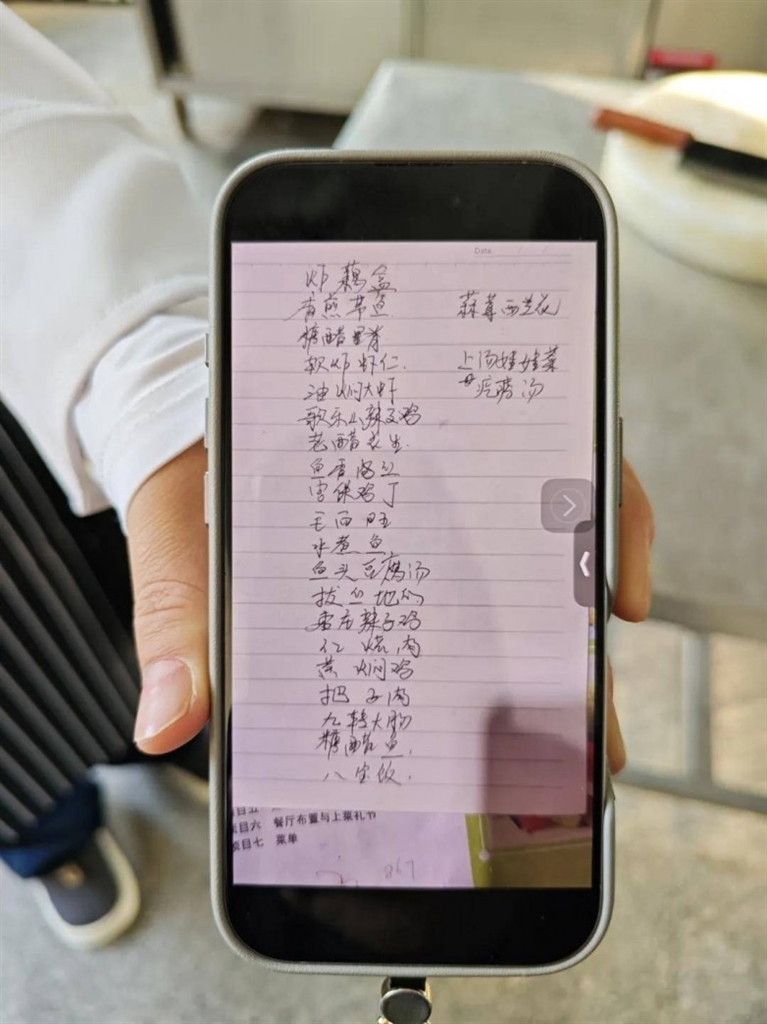 Date.
炸藕盒
香煎带鱼
蒜茸西兰花
糖醋里脊
软炸虾仁
上汤娃娃菜
油焖大虾
疙瘩汤
歌乐山辣子鸡
老醋花生
鱼香
宫保鸡丁
毛血旺
水煮鱼
鱼头豆腐汤
拔丝地瓜
枣庄辣子鸡
红烧肉
黄焖鸡
把子肉
九转大肠
糖醋鱼
八宝饭
项目五
项目六 餐厅布置与上菜礼节
项目七 菜单